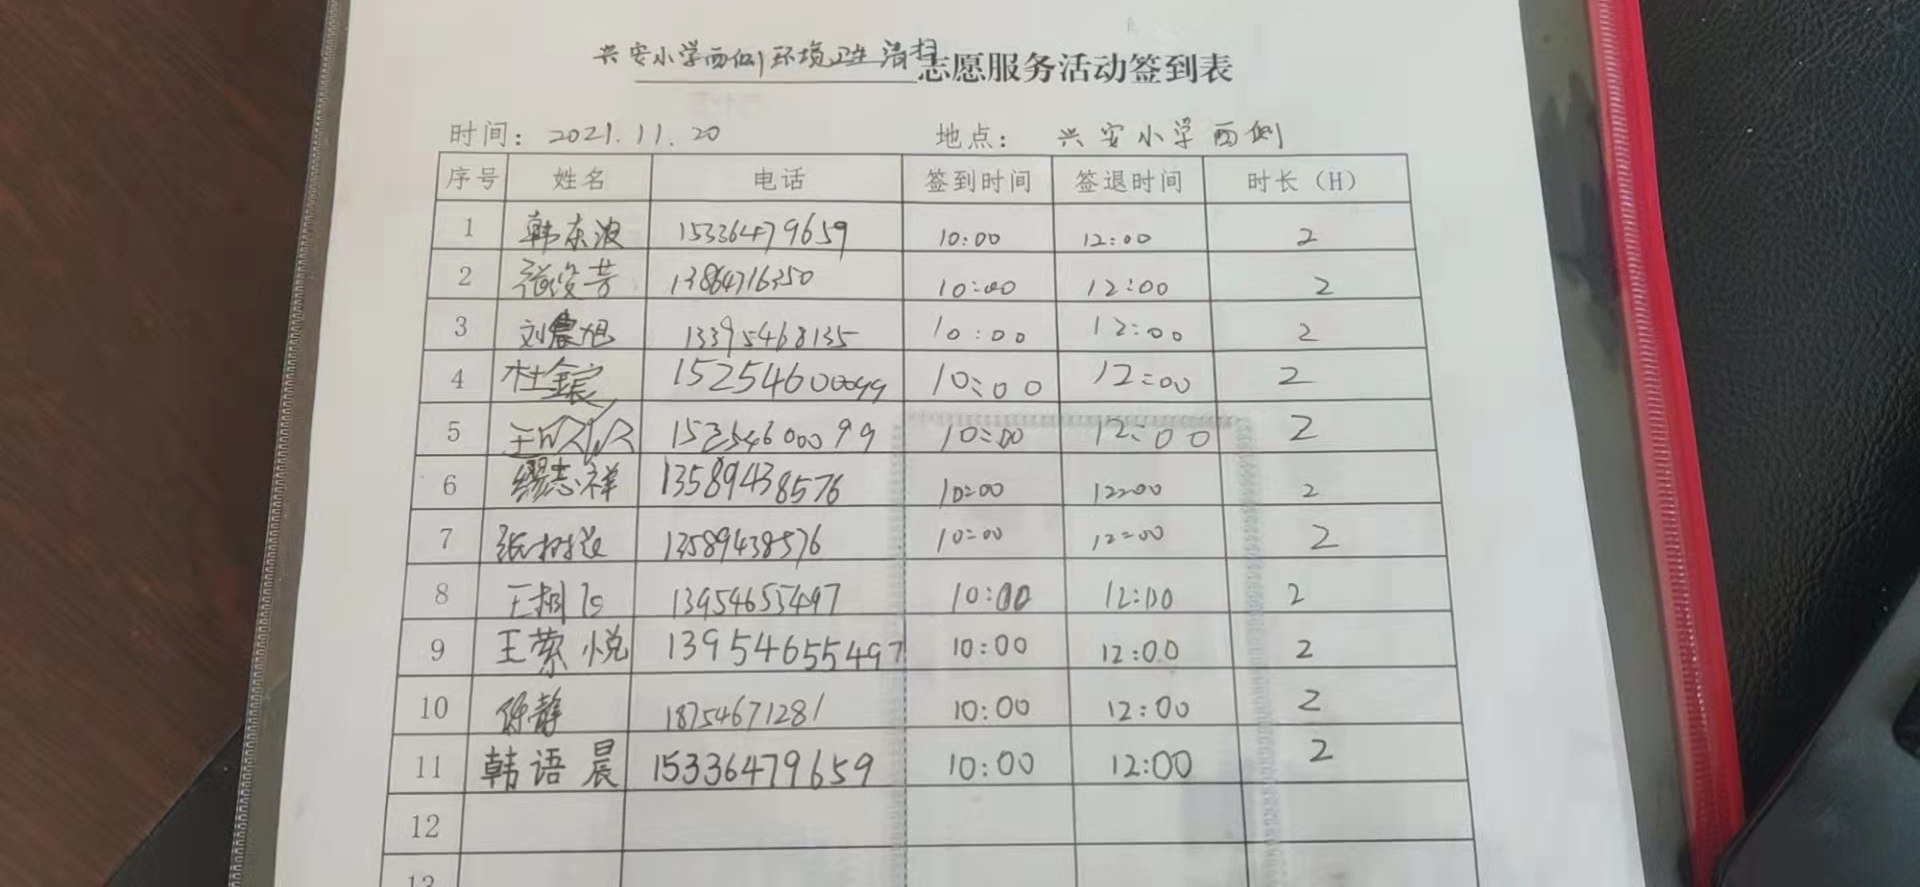 兴安小学西侧环境卫生清扫志愿服务活动签到表
时间：2021.11.20 地点：兴安小学西侧
序号 姓名 电话 签到时间 签退时间 时长（H）
1 韩东波 15336479659 10:00 12:00 2
2 张俊芳 13864716350 10:00 12:00 2
3 刘晨旭 13395468135 10:00 12:00 2
4 杜金宸 15254600099 10:00 12:00 2
5 王 15254600099 10:00 12:00 2
6 缪志祥 13589438576 10:00 12:00 2
7 张树 13589438576 10:00 12:00 2
8 王 13954655497 10:00 12:00 2
9 王萦悦 13954655497 10:00 12:00 2
10 静 18754671281 10:00 12:00 2
11 韩语晨 15336479659 10:00 12:00 2
12
13